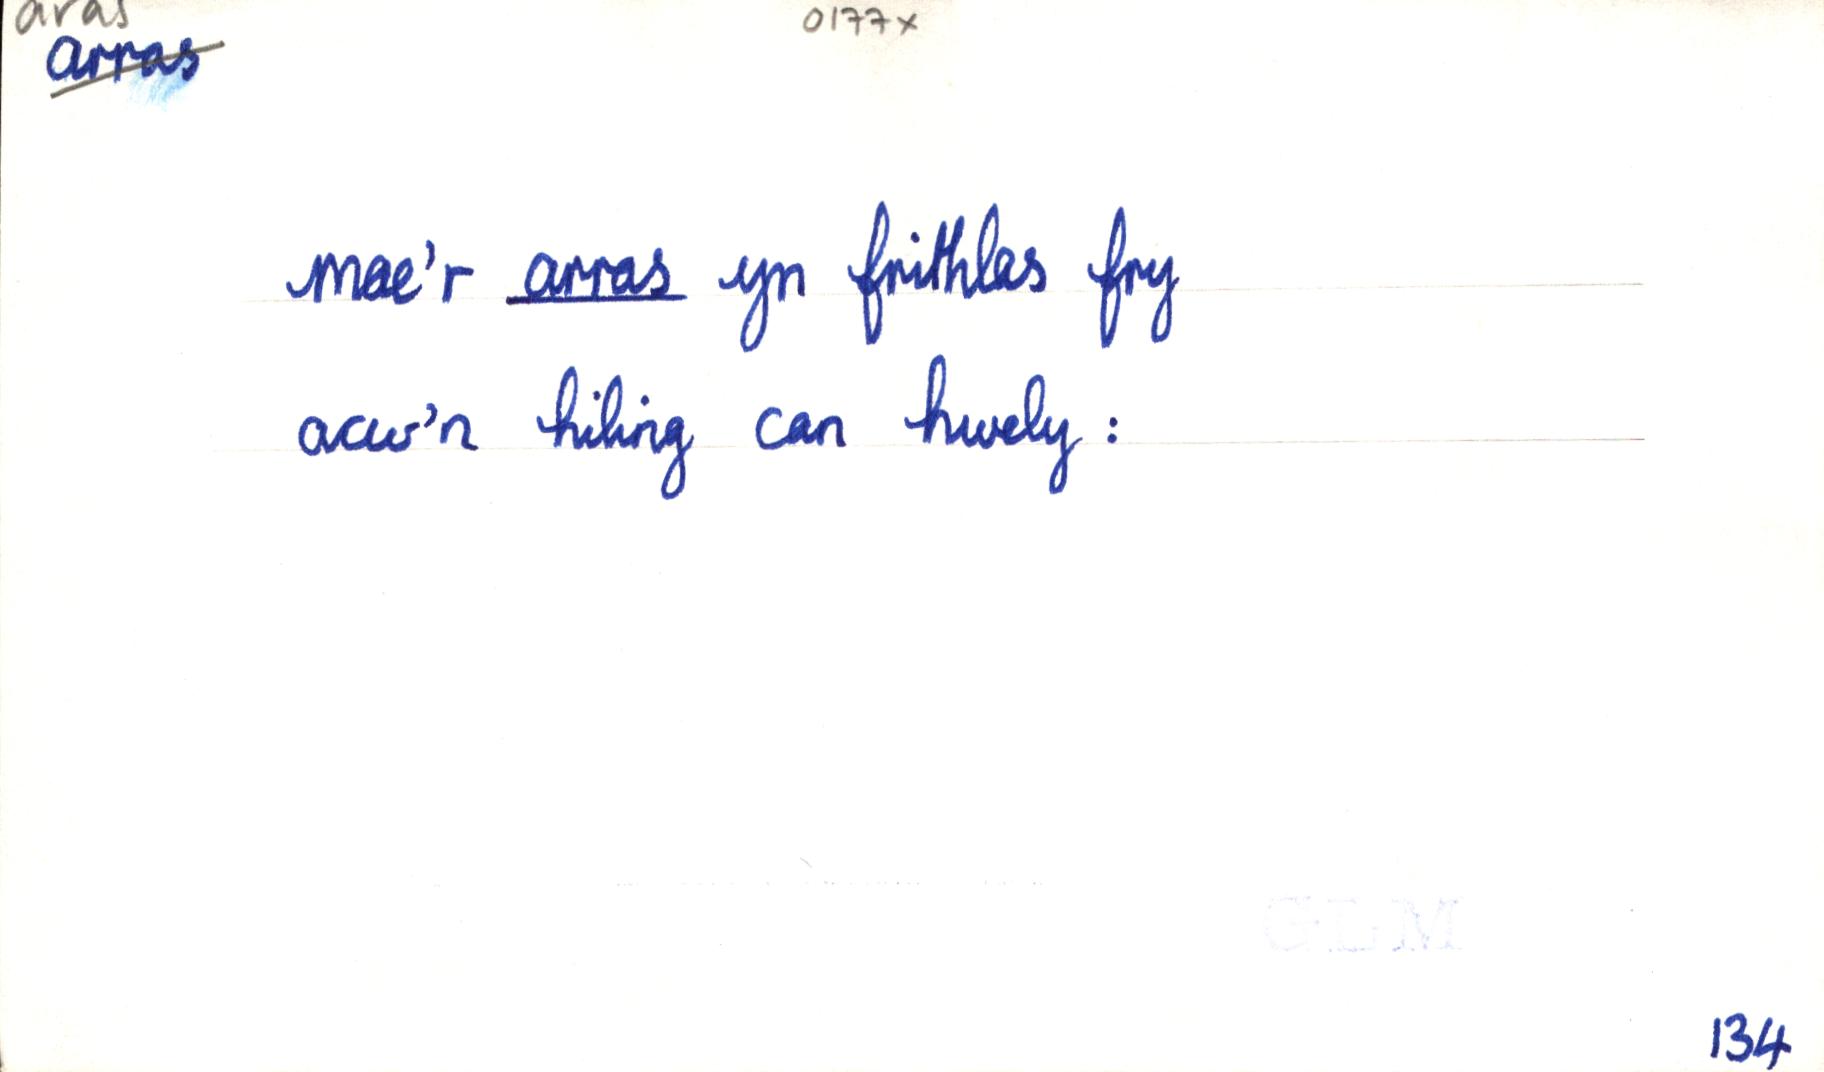 aras
0177x
arras
mae'r arras yn frithlas fry
acw'n hiling can hwely:
GLM
134